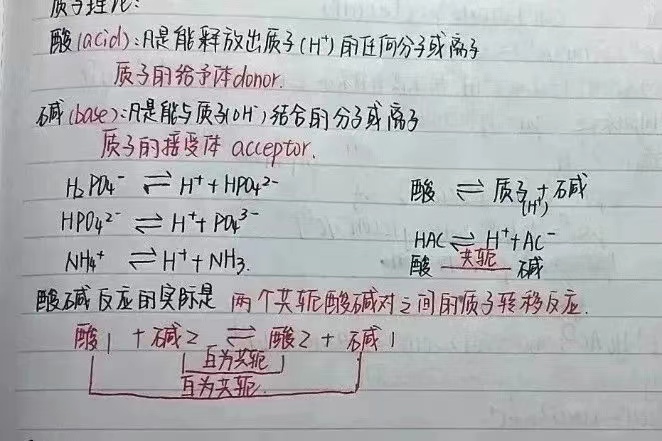 质子理论:
酸(acid):凡是能释放出质子(H⁺)的任何分子或离子
质子的给予体donor.
碱(base):凡是能与质子(OH⁻)结合的分子或离子
质子的接受体 acceptor.
H₂PO₄⁻ ⇌ H⁺+HPO₄²⁻
HPO₄²⁻ ⇌ H⁺+PO₄³⁻
NH₄⁺ ⇌ H⁺+NH₃.
酸 ⇌ 质子+碱
(H⁺)
HAC ⇌ H⁺+AC⁻
酸 共轭 碱
酸碱反应的实际是 两个共轭酸碱对之间的质子转移反应.
酸1 +碱2 ⇌ 酸2 + 碱1
互为共轭
互为共轭.